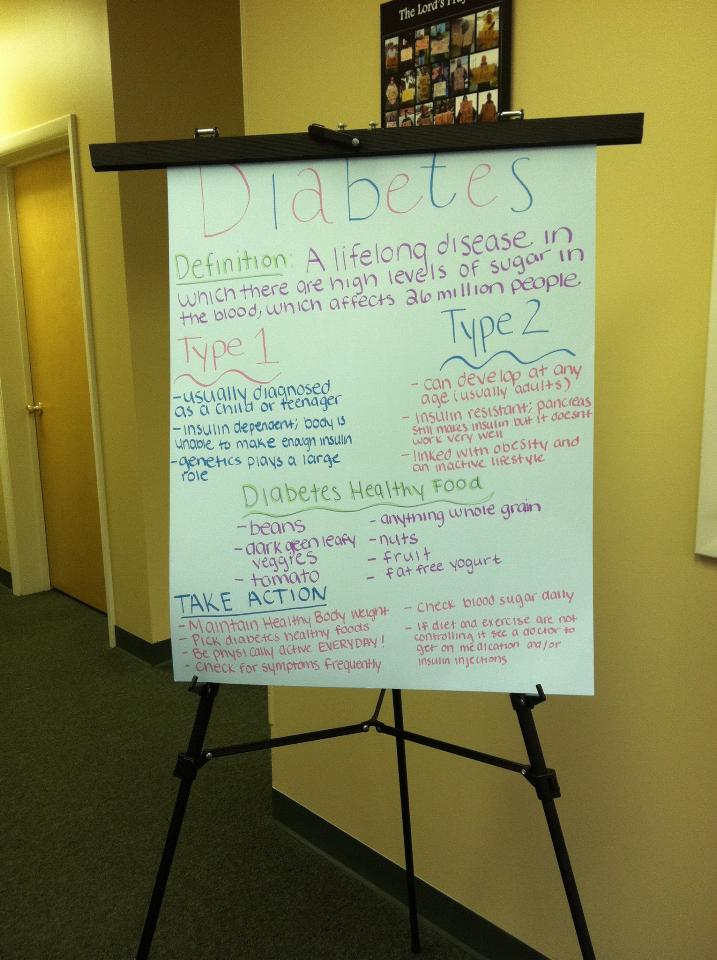 The Lord's
Diabetes
Definition: A lifelong disease in
which there are high levels of sugar in
the blood, which affects 26 million people.
Type 1
-usually diagnosed
as a child or teenager
-insulin dependent; body is
unable to make enough insulin
-genetics plays a large
role
Type 2
- can develop at any
age (usually adults)
- insulin resistant; pancreas
still makes insulin but it doesn't
work very well
- linked with obesity and
an inactive lifestyle
Diabetes Healthy Food
- beans
- dark geen leafy
veggies
- tomato
- anything whole grain
- nuts
- fruit
- fat free yogurt
TAKE ACTION
- Maintain Healthy Body Weight
- Pick diabetes healthy foods
- Be physically active EVERYDAY!
- Check for symptoms frequently
- Check blood sugar daily
- If diet and exercise are not
controlling it see a doctor to
get on medication and/or
insulin injections